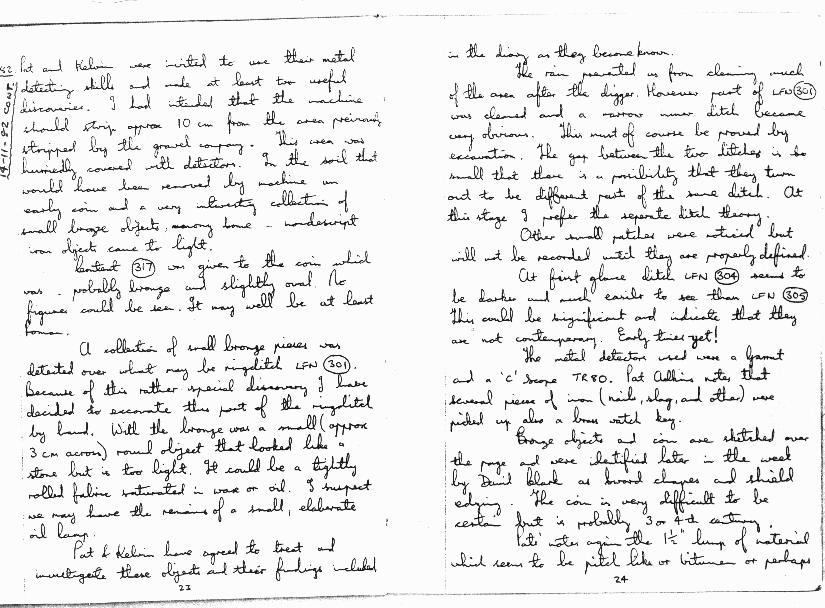 19-11-82 CONT.
Pat and Kelvin were invited to use their metal
detecting skills and made at least two useful
discoveries. I had intended that the machine
should strip approx 10 cm from the area previously
stripped by the gravel company. This area was
hurriedly covered with detectors. In the soil that
would have been removed by machine an
early coin and a very interesting collection of
small bronze objects, among some - nondescript
iron objects came to light.
Context 317 was given to the coin which
was - probably bronze and slightly oval. No
figures could be seen. It may well be at least
Roman.
A collection of small bronze pieces was
detected over what may be ringditch LFN 301.
Because of this rather special discovery I have
decided to excavate this part of the ringditch
by hand. With the bronze was a small (approx
3 cm across) round object that looked like a
stone but is too light. It could be a tightly
rolled fabric saturated in wax or oil. I suspect
we may have the remains of a small, elaborate
oil lamp.
Pat & Kelvin have agreed to treat and
investigate these objects and their findings included
23
in the diary as they become known.
The rain prevented us from cleaning much
of the area after the digger. However part of LFN 301
was cleaned and a narrow inner ditch became
very obvious. This must of course be proved by
excavation. The gap between the two ditches is so
small that there is a posibility that they turn
out to be different part of the same ditch. At
this stage I prefer the seperate ditch theory.
Other small patches were noticed but
will not be recorded until they are properly defined.
At first glance ditch LFN 304 seems to
be darker and much easier to see than LFN 305
This could be significant and indicate that they
are not contemporary. Early times yet!
The metal detectors used were a Garret
and a 'C' Scope TR80. Pat Adkins notes that
several pieces of iron (nail, slag, and other) were
picked up also a brass watch key.
Bronze objects and coin are sketched over
the page and were identified later in the week
by David Black as sword chapes and shield
edging. The coin is very difficult to be
certain but is probably 3 or 4th century.
Pats' notes again the 1½" lump of material
which seems to be pitch like or bitumen or perhaps
24